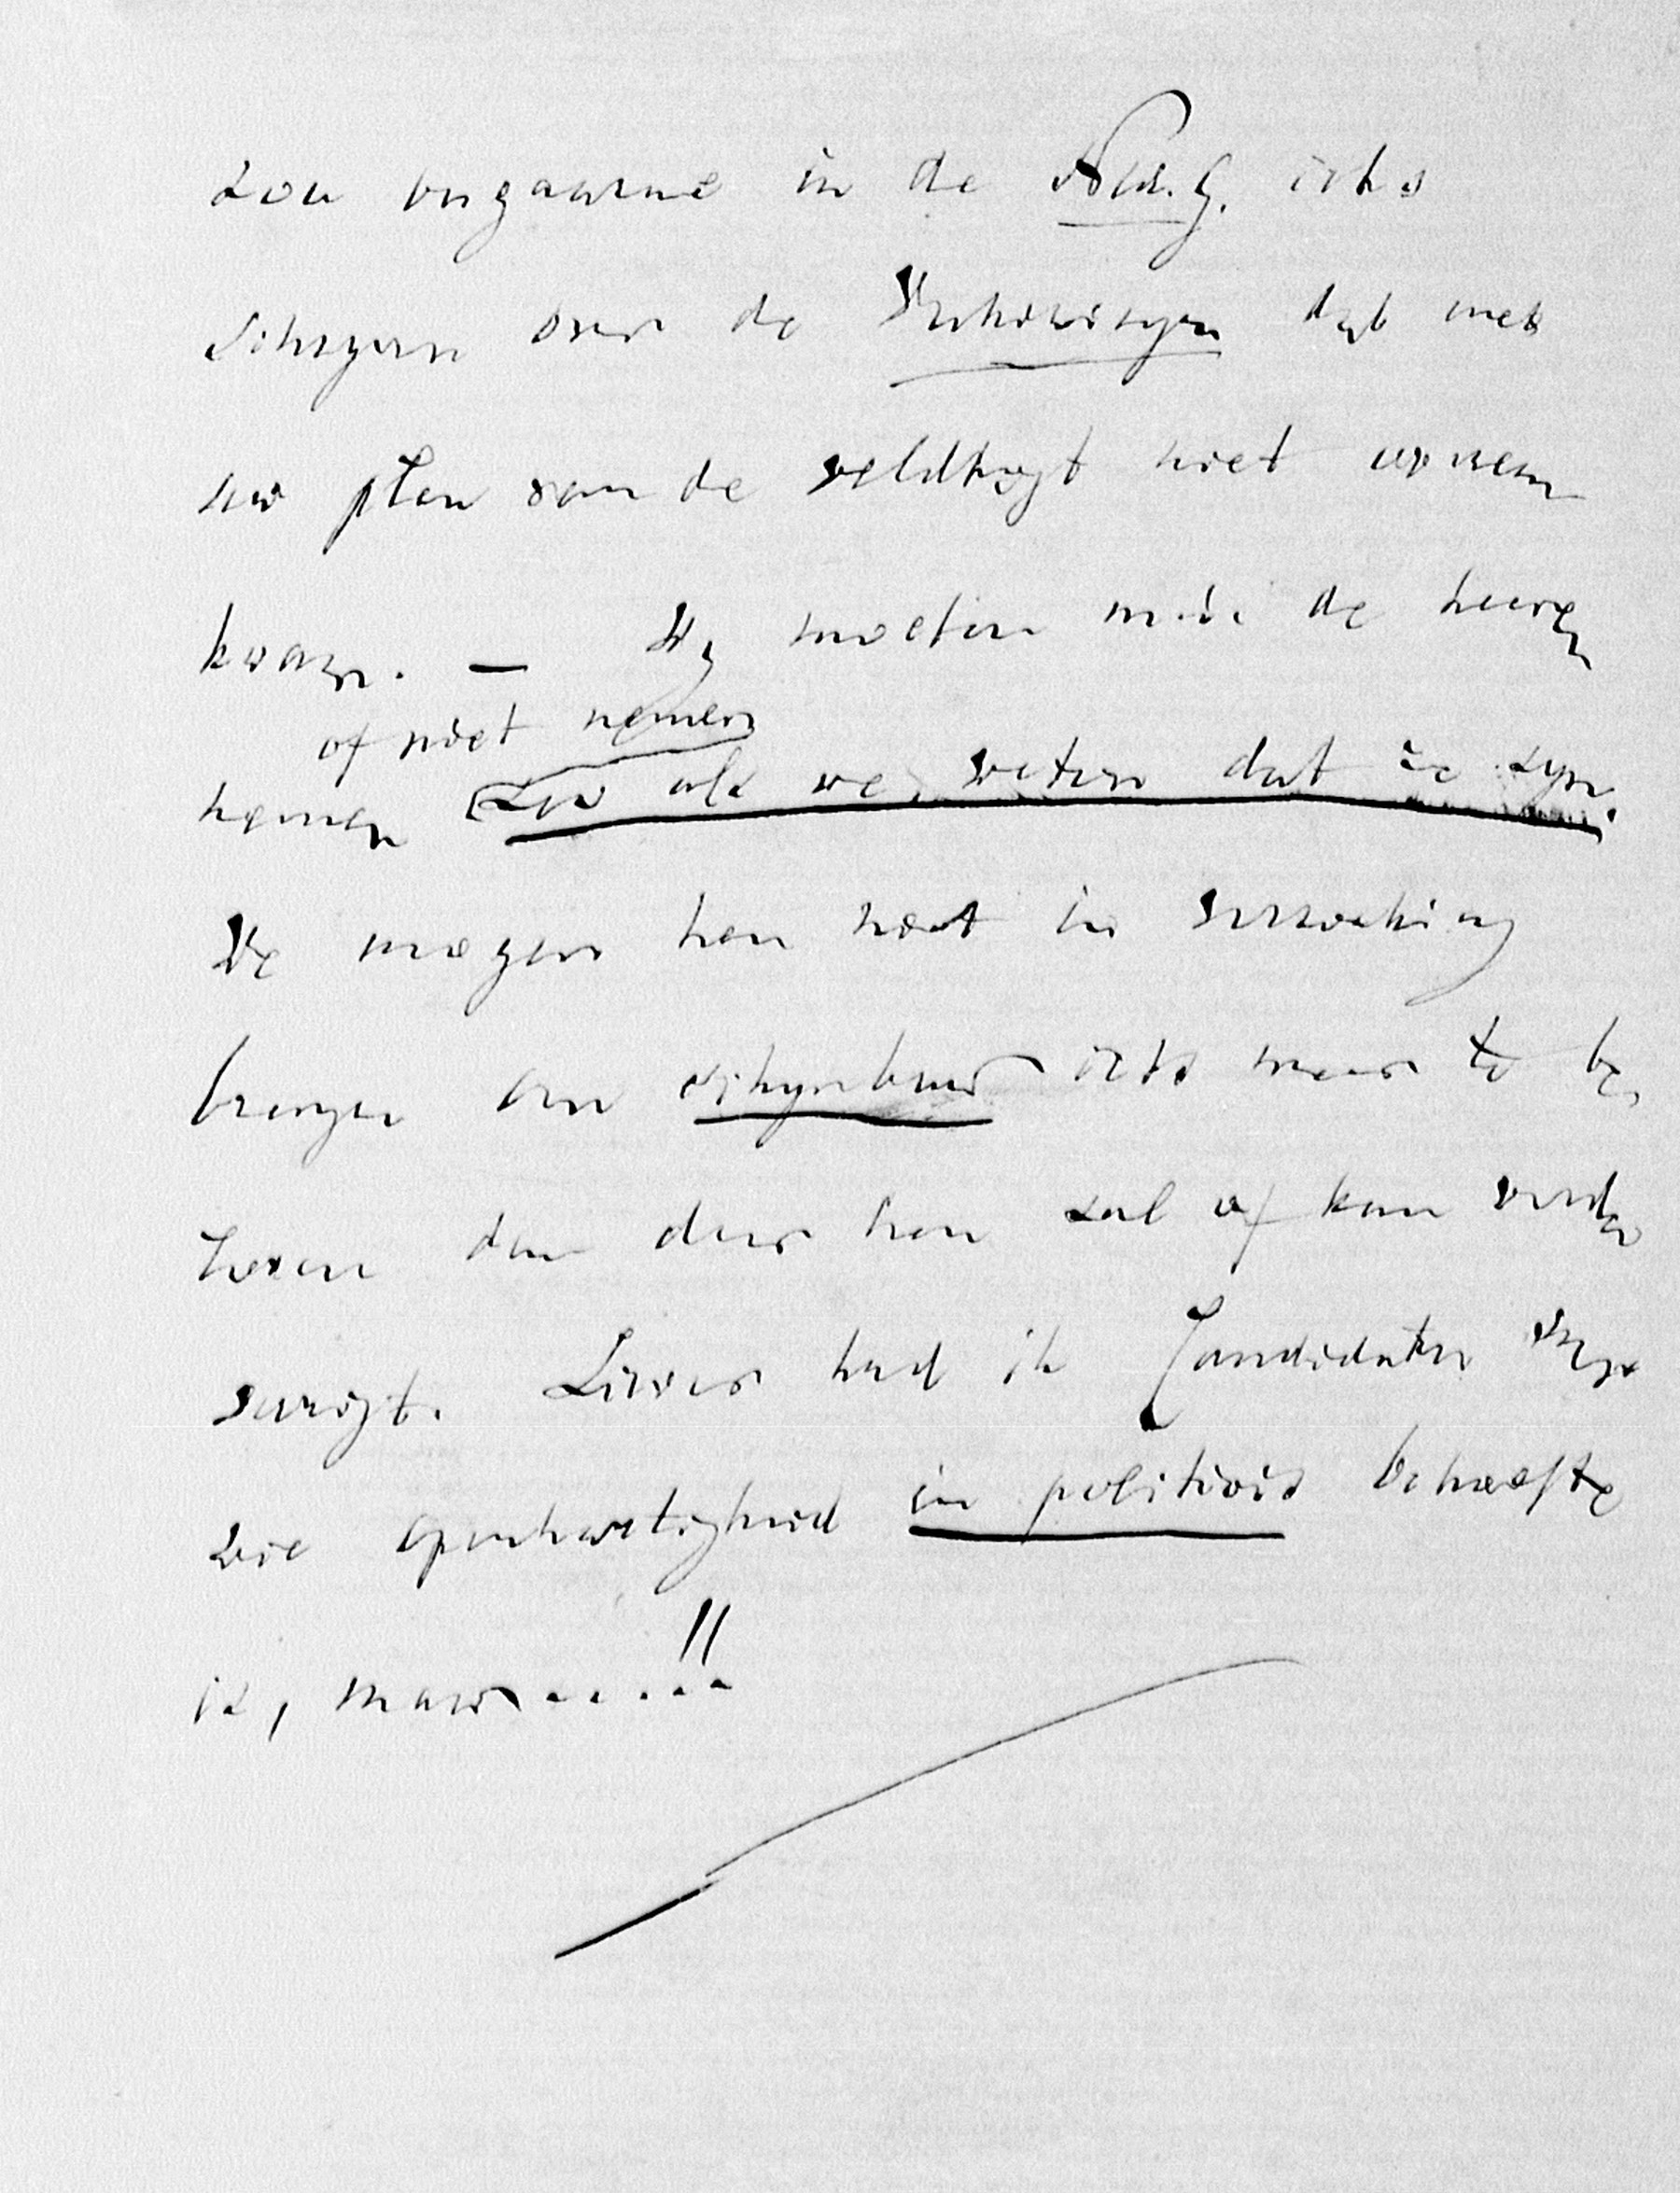 zou ongaarne in de Ned. G. iets
schrijven over de Verkiezingen dat met
uw plan van de veldtogt niet overeen
kwam. — Wij moeten m.i. de heeren
of niet nemen
nemen zoo als we weten dat ze zyn.
We mogen hen niet in verzoeking
brengen om schynbaar iets meer te be,
loven dan door hen zal of kan worden
Liever had ik Candidaten
wie openhartigheid in politicis behoefte
is, maar.....!!